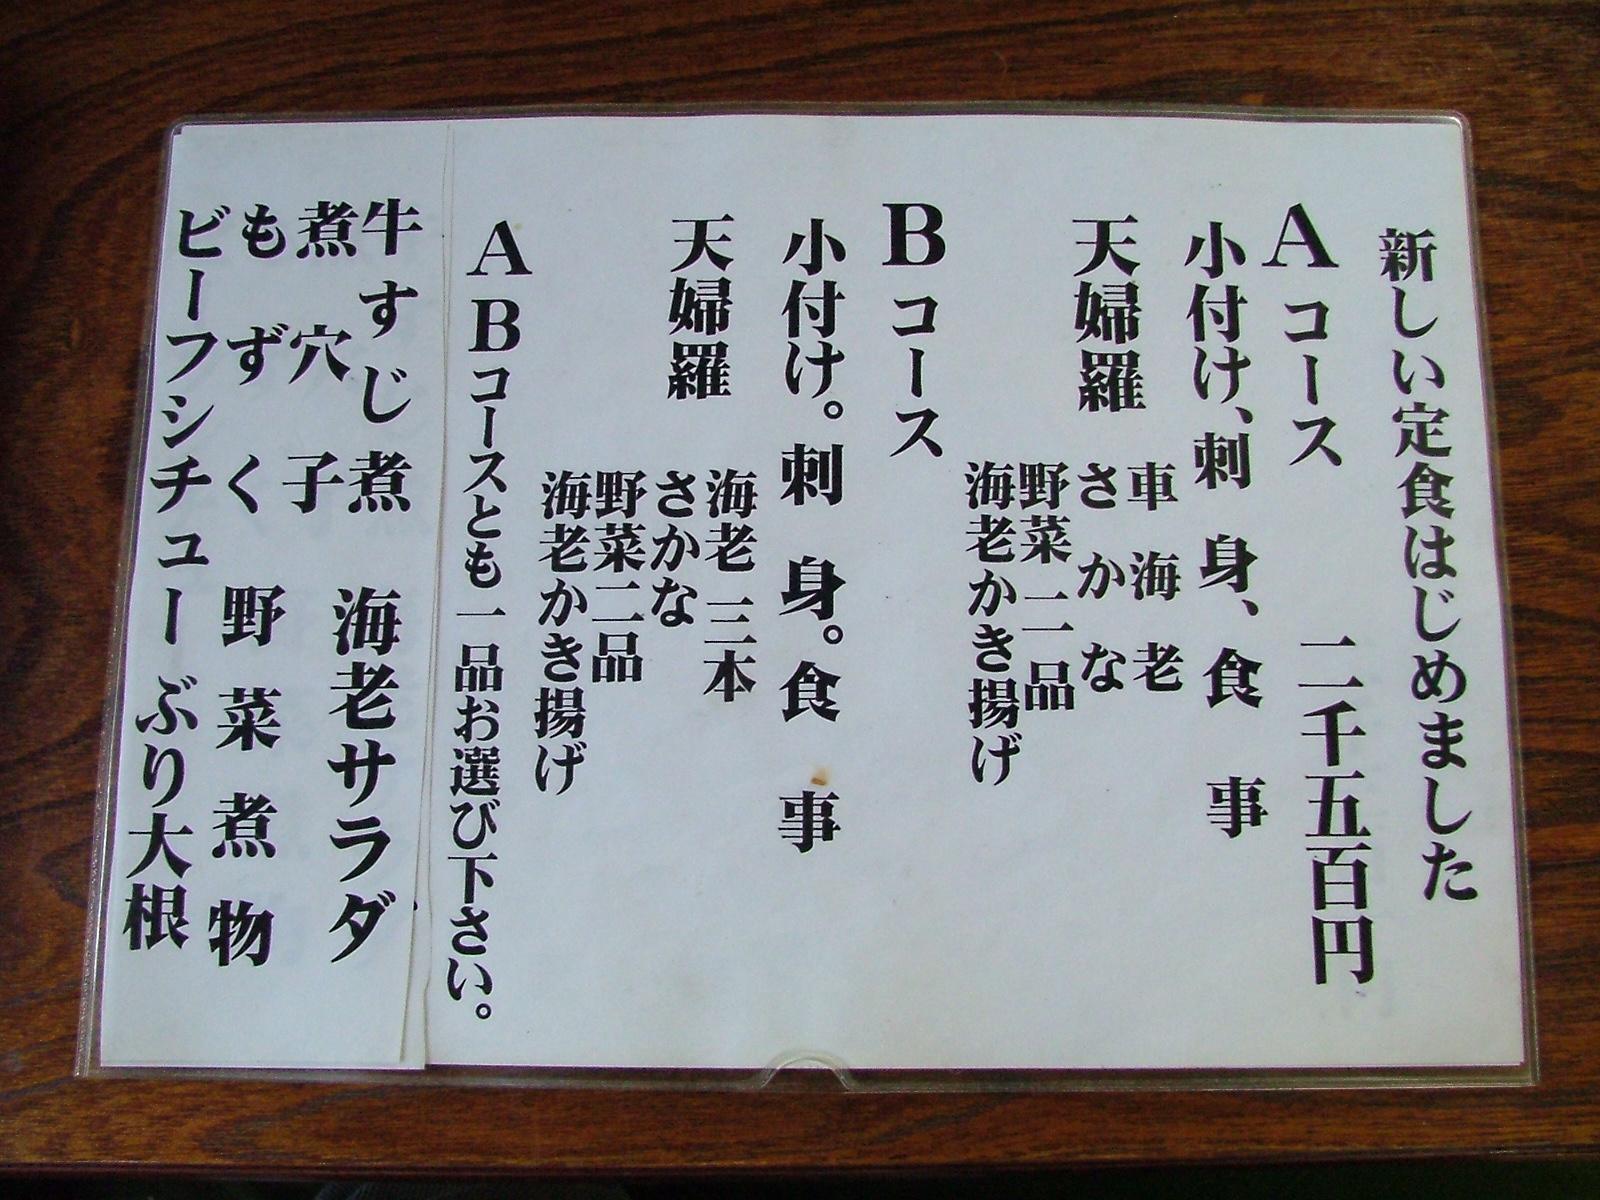 新しい定食はじめました
Aコース 二千五百円
小付け、刺身、食事
天婦羅
車海老
さかな
野菜二品
海老かき揚げ
Bコース
小付け。刺身。食事
天婦羅
海老三本
さかな
野菜二品
海老かき揚げ
ABコースとも一品お選び下さい。
牛すじ煮 海老サラダ
煮穴子
もずく 野菜煮物
ビーフシチュー ぶり大根